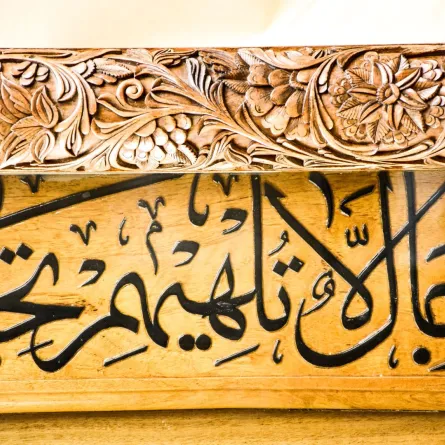 جَالٌ لَّا تُلْهِيهِمْ تِجَ